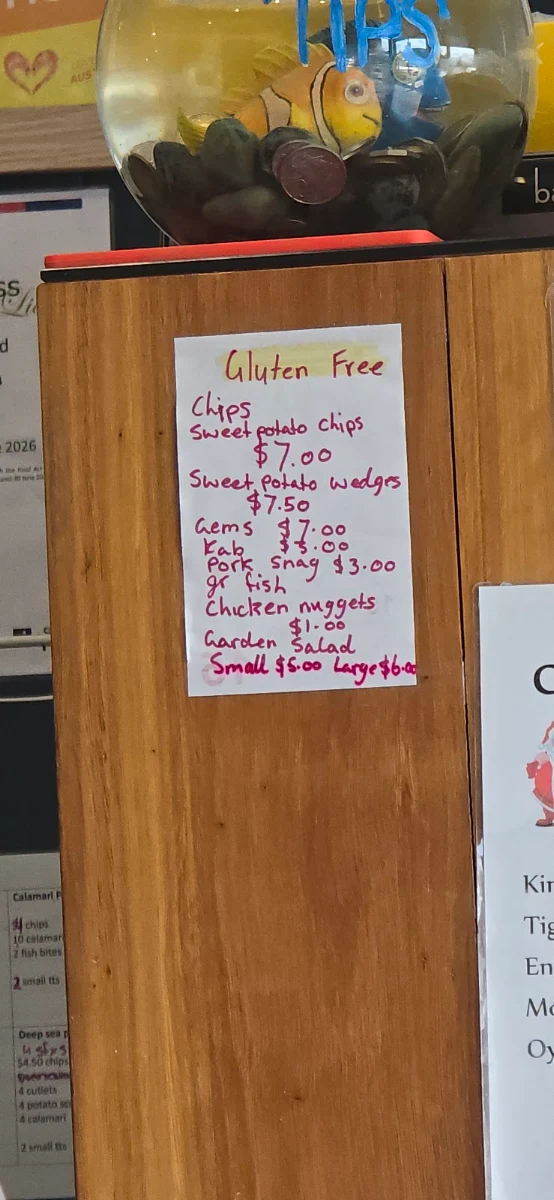 TIPS
AUS
ss
d
2026
Gluten Free
Chips
Sweet potato chips
$7.00
Sweet potato wedges
$7.50
Gems $7.00
Kab $5.00
Pork Snag $3.00
gr fish
Chicken nuggets
$1.00
Garden Salad
Small $5.00 Large $6.00
Calamari P
4 chips
10 calamar
2 fish bites
2 small tts
Deep sea p
$4.50 chips
4 cutlets
4 potato sc
4 calamari
2 small tts
C
Kin
Tig
En
Mo
Oy